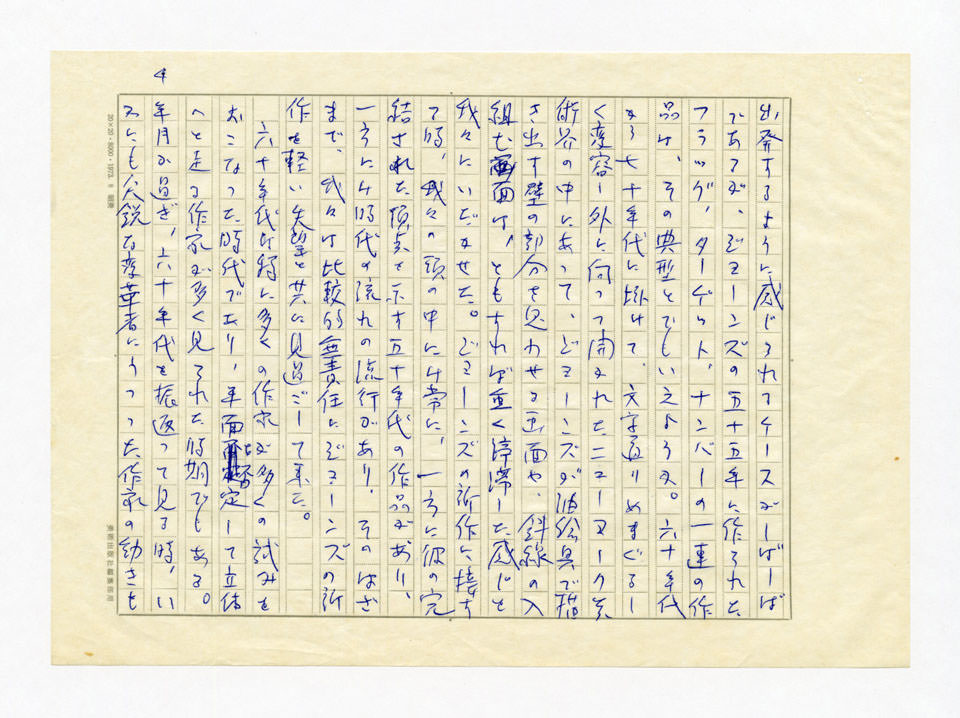 4
出発するように感じられてケースがしばしば
であるが、ジョーンズの五十五年に作られた
フラッグ、ターゲット、ナンバーの一連の作
品は、その典型とでもいえようか。六十年代
から七十年代に掛けて、文字通りめまぐるし
く変容し外に向って開かれたニューヨーク美
術界の中にあって、ジョーンズが油絵具で描
き出す壁の部分を思わせる画面や、斜線の入
組む画面は、ともすれば重く停滞した感じと
我々にいだかせた。ジョーンズの新作に接す
る時、我々の頭の中には常に、一方に彼の完
結された頂点を示す五十年代の作品があり、
一方には時代の流れの流行があり、そのはざ
まで、我々は比較的無責任にジョーンズの新
作を軽い失望と共に見過ごして来た。
六十年代は特に多くの作家が多くの試みを
おこなった時代であり、平面を否定して立体
へと走る作家が多く見られた時期でもある。
年月が過ぎ、六十年代を振返って見る時、い
かにも尖鋭な変革者にうつった作家の幼さも
20×20・8000・1973.8
美術出版社編集部用